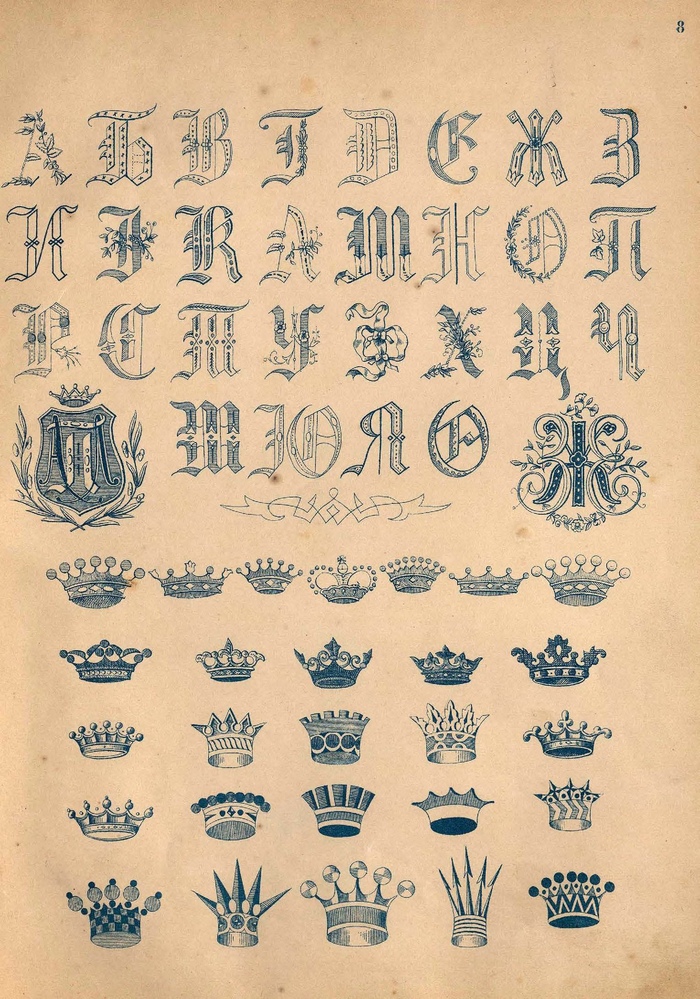 8
А Б В Г Д Е Ж З
И І К Л М Н О П
Р С Т У Ф Х Ц Ч
Ш Ю Я Ѳ